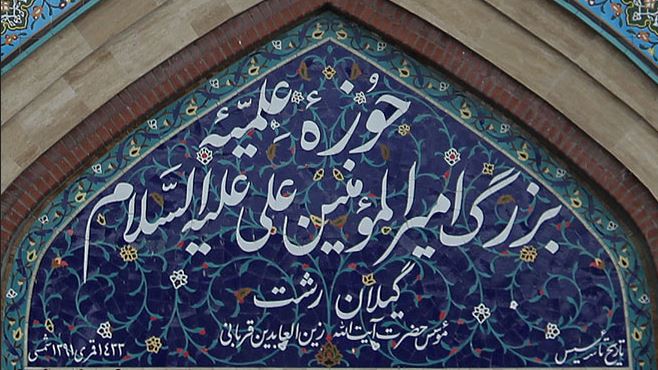 حوزهٔ علمیّهٔ
بزرگ امیرالمؤمنین علی علیه السَّلام
گیلان رشت
مؤسس حضرت آیت الله زین العابدین قربانی
تاریخ تاسیس ۱۴۳۳ قمری ۱۳۹۱ شمسی